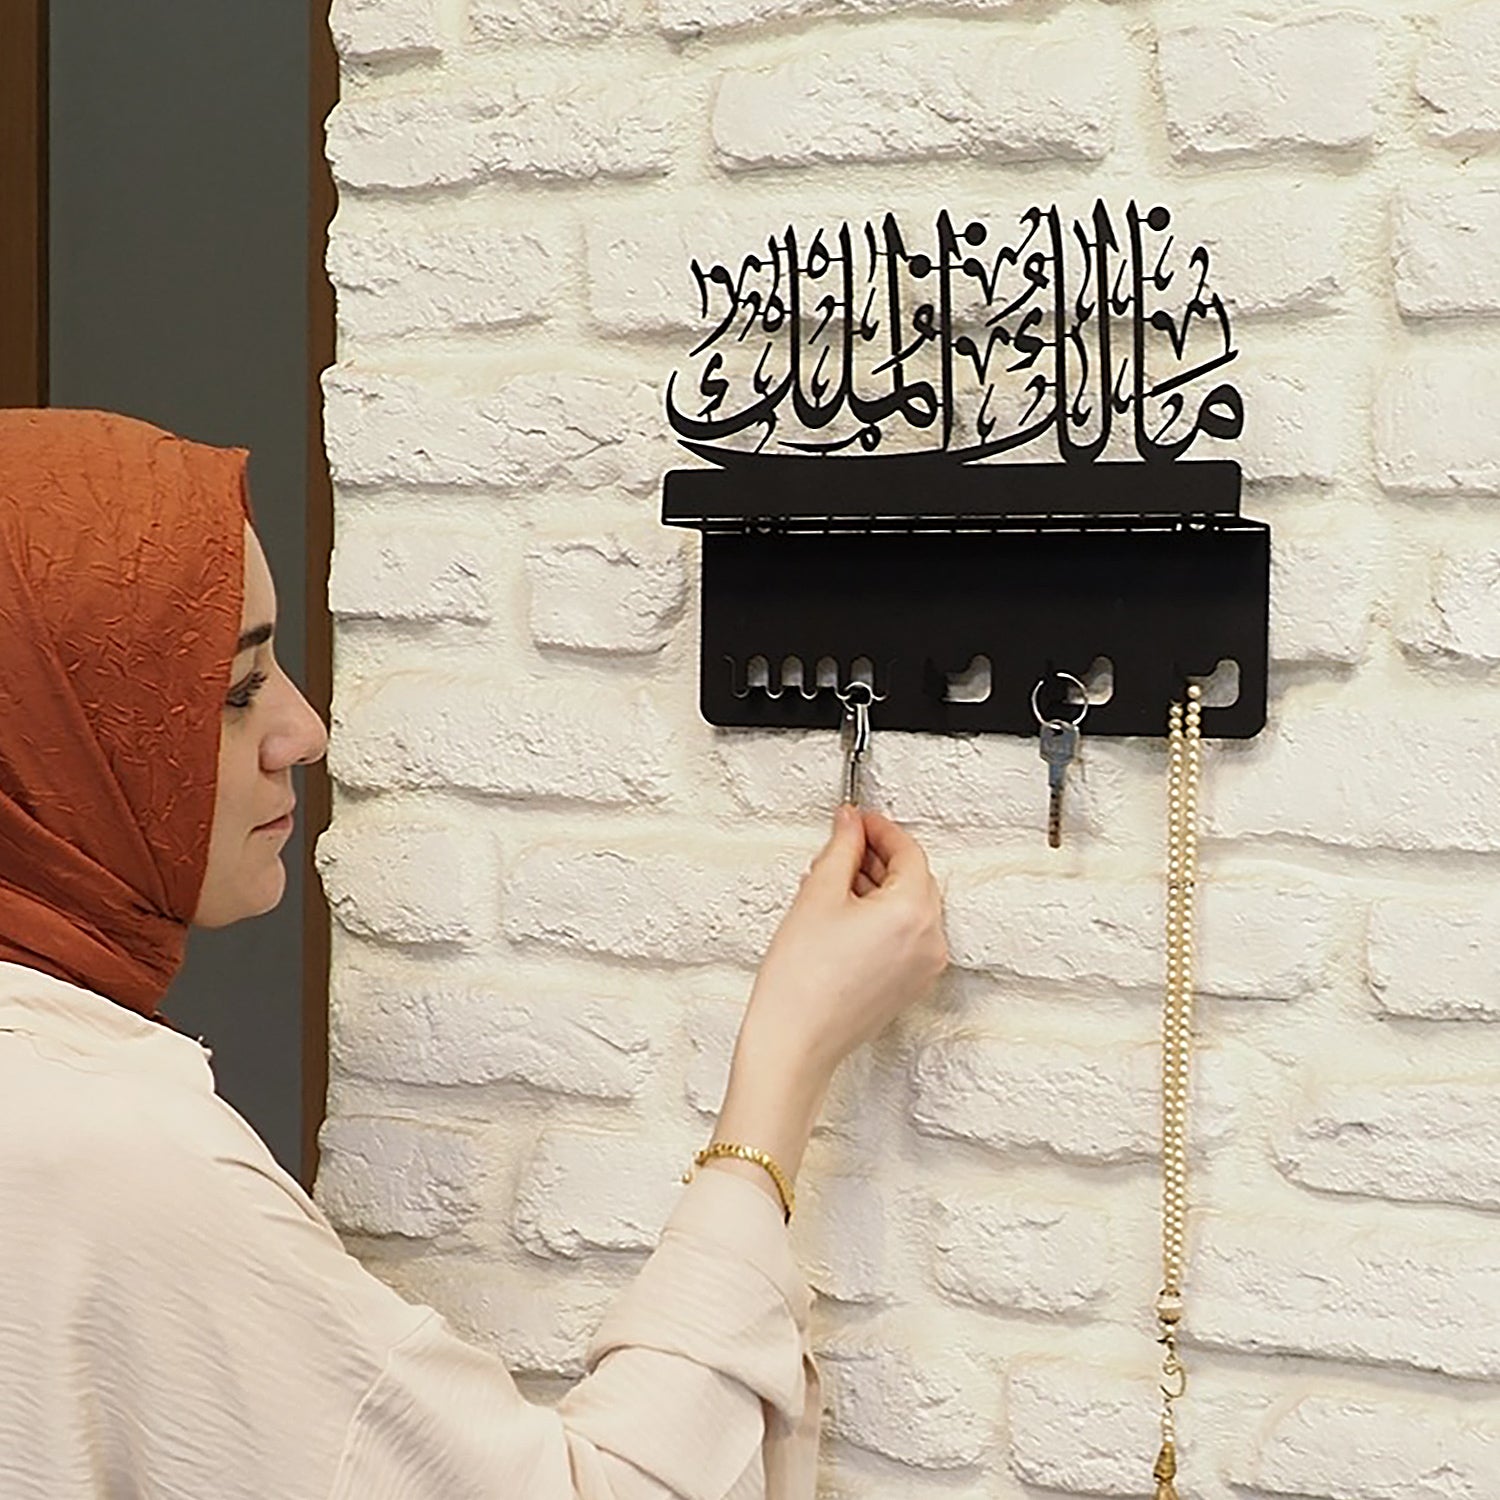 مَالِكَ الْمُلْكِ